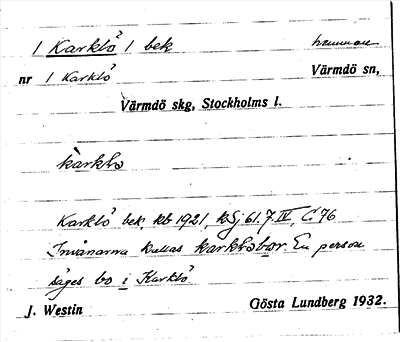 1 Karklö 1 bek hamnar
nr 1 Karklö Värmdö sn,
Värmdö skg, Stockholms l.
karklo
Karklö bek, kb 1921, kSj. 61. 7. IV, C. 76
Invånarna kallas karklobor. En person
säges bo i Karklö
J. Westin Gösta Lundberg 1932.